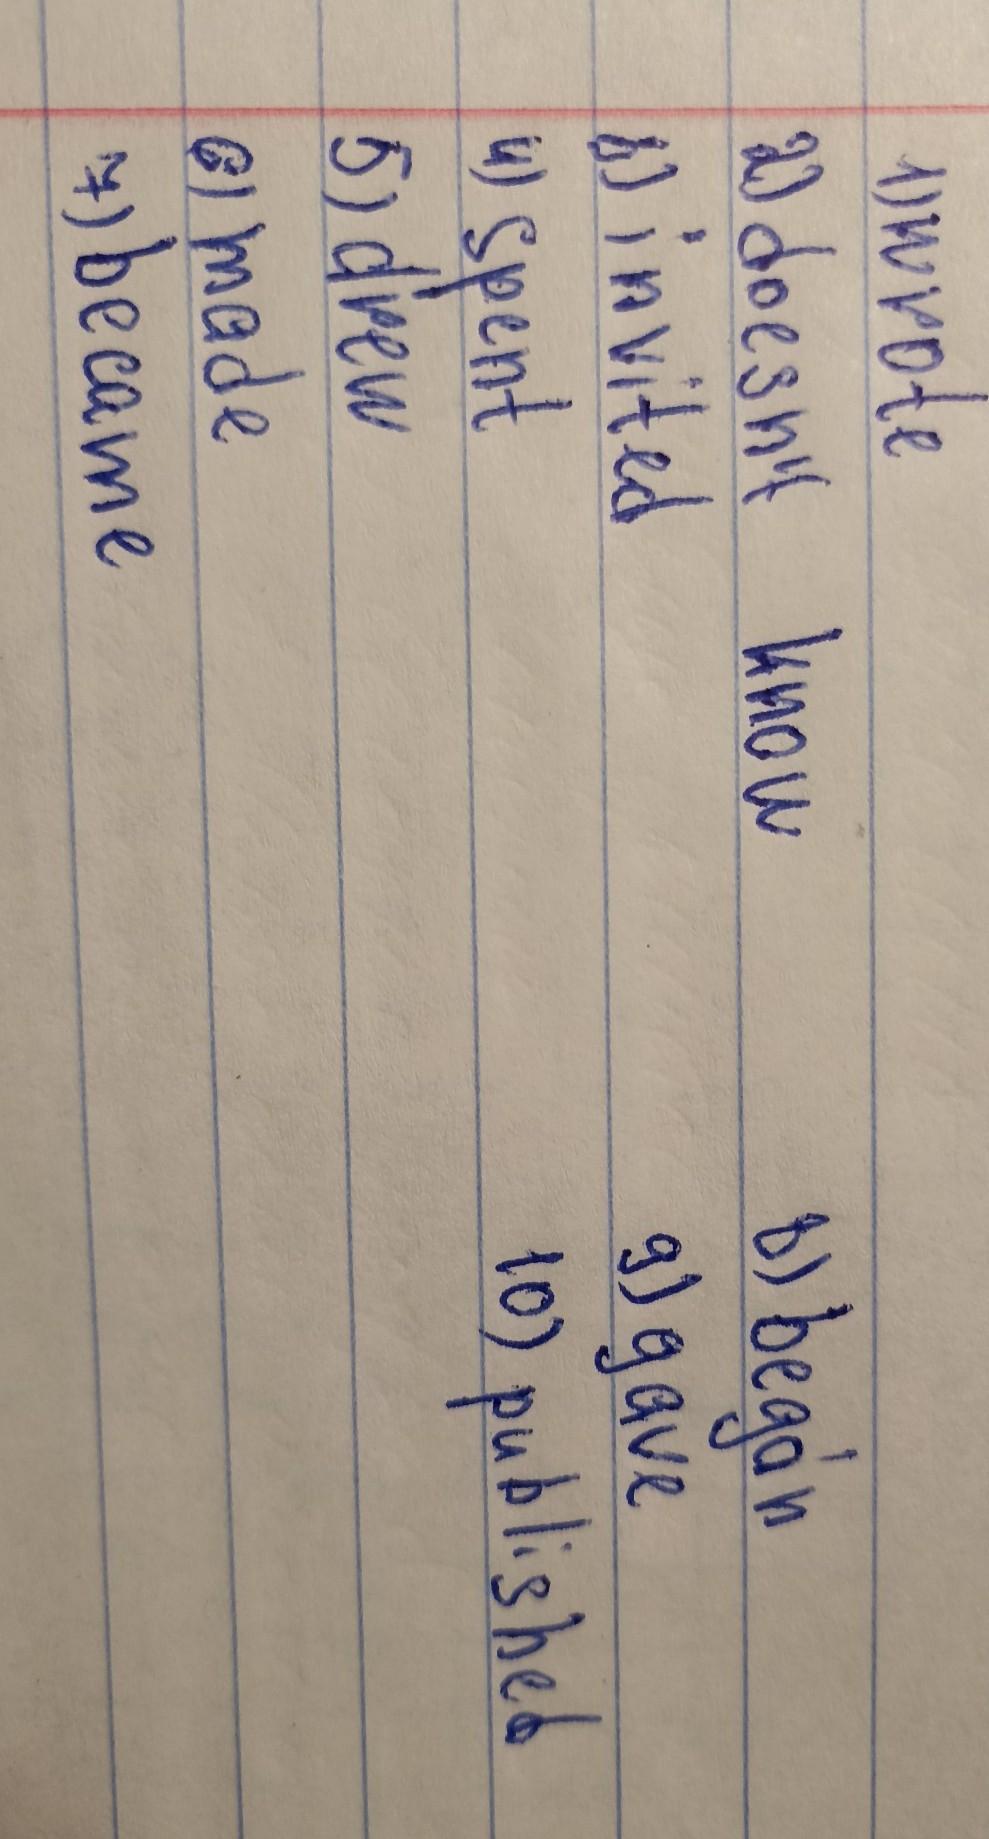 1) wrote
2) doesn't know
3) invited
4) spent
5) drew
6) made
7) became
8) began
9) gave
10) published